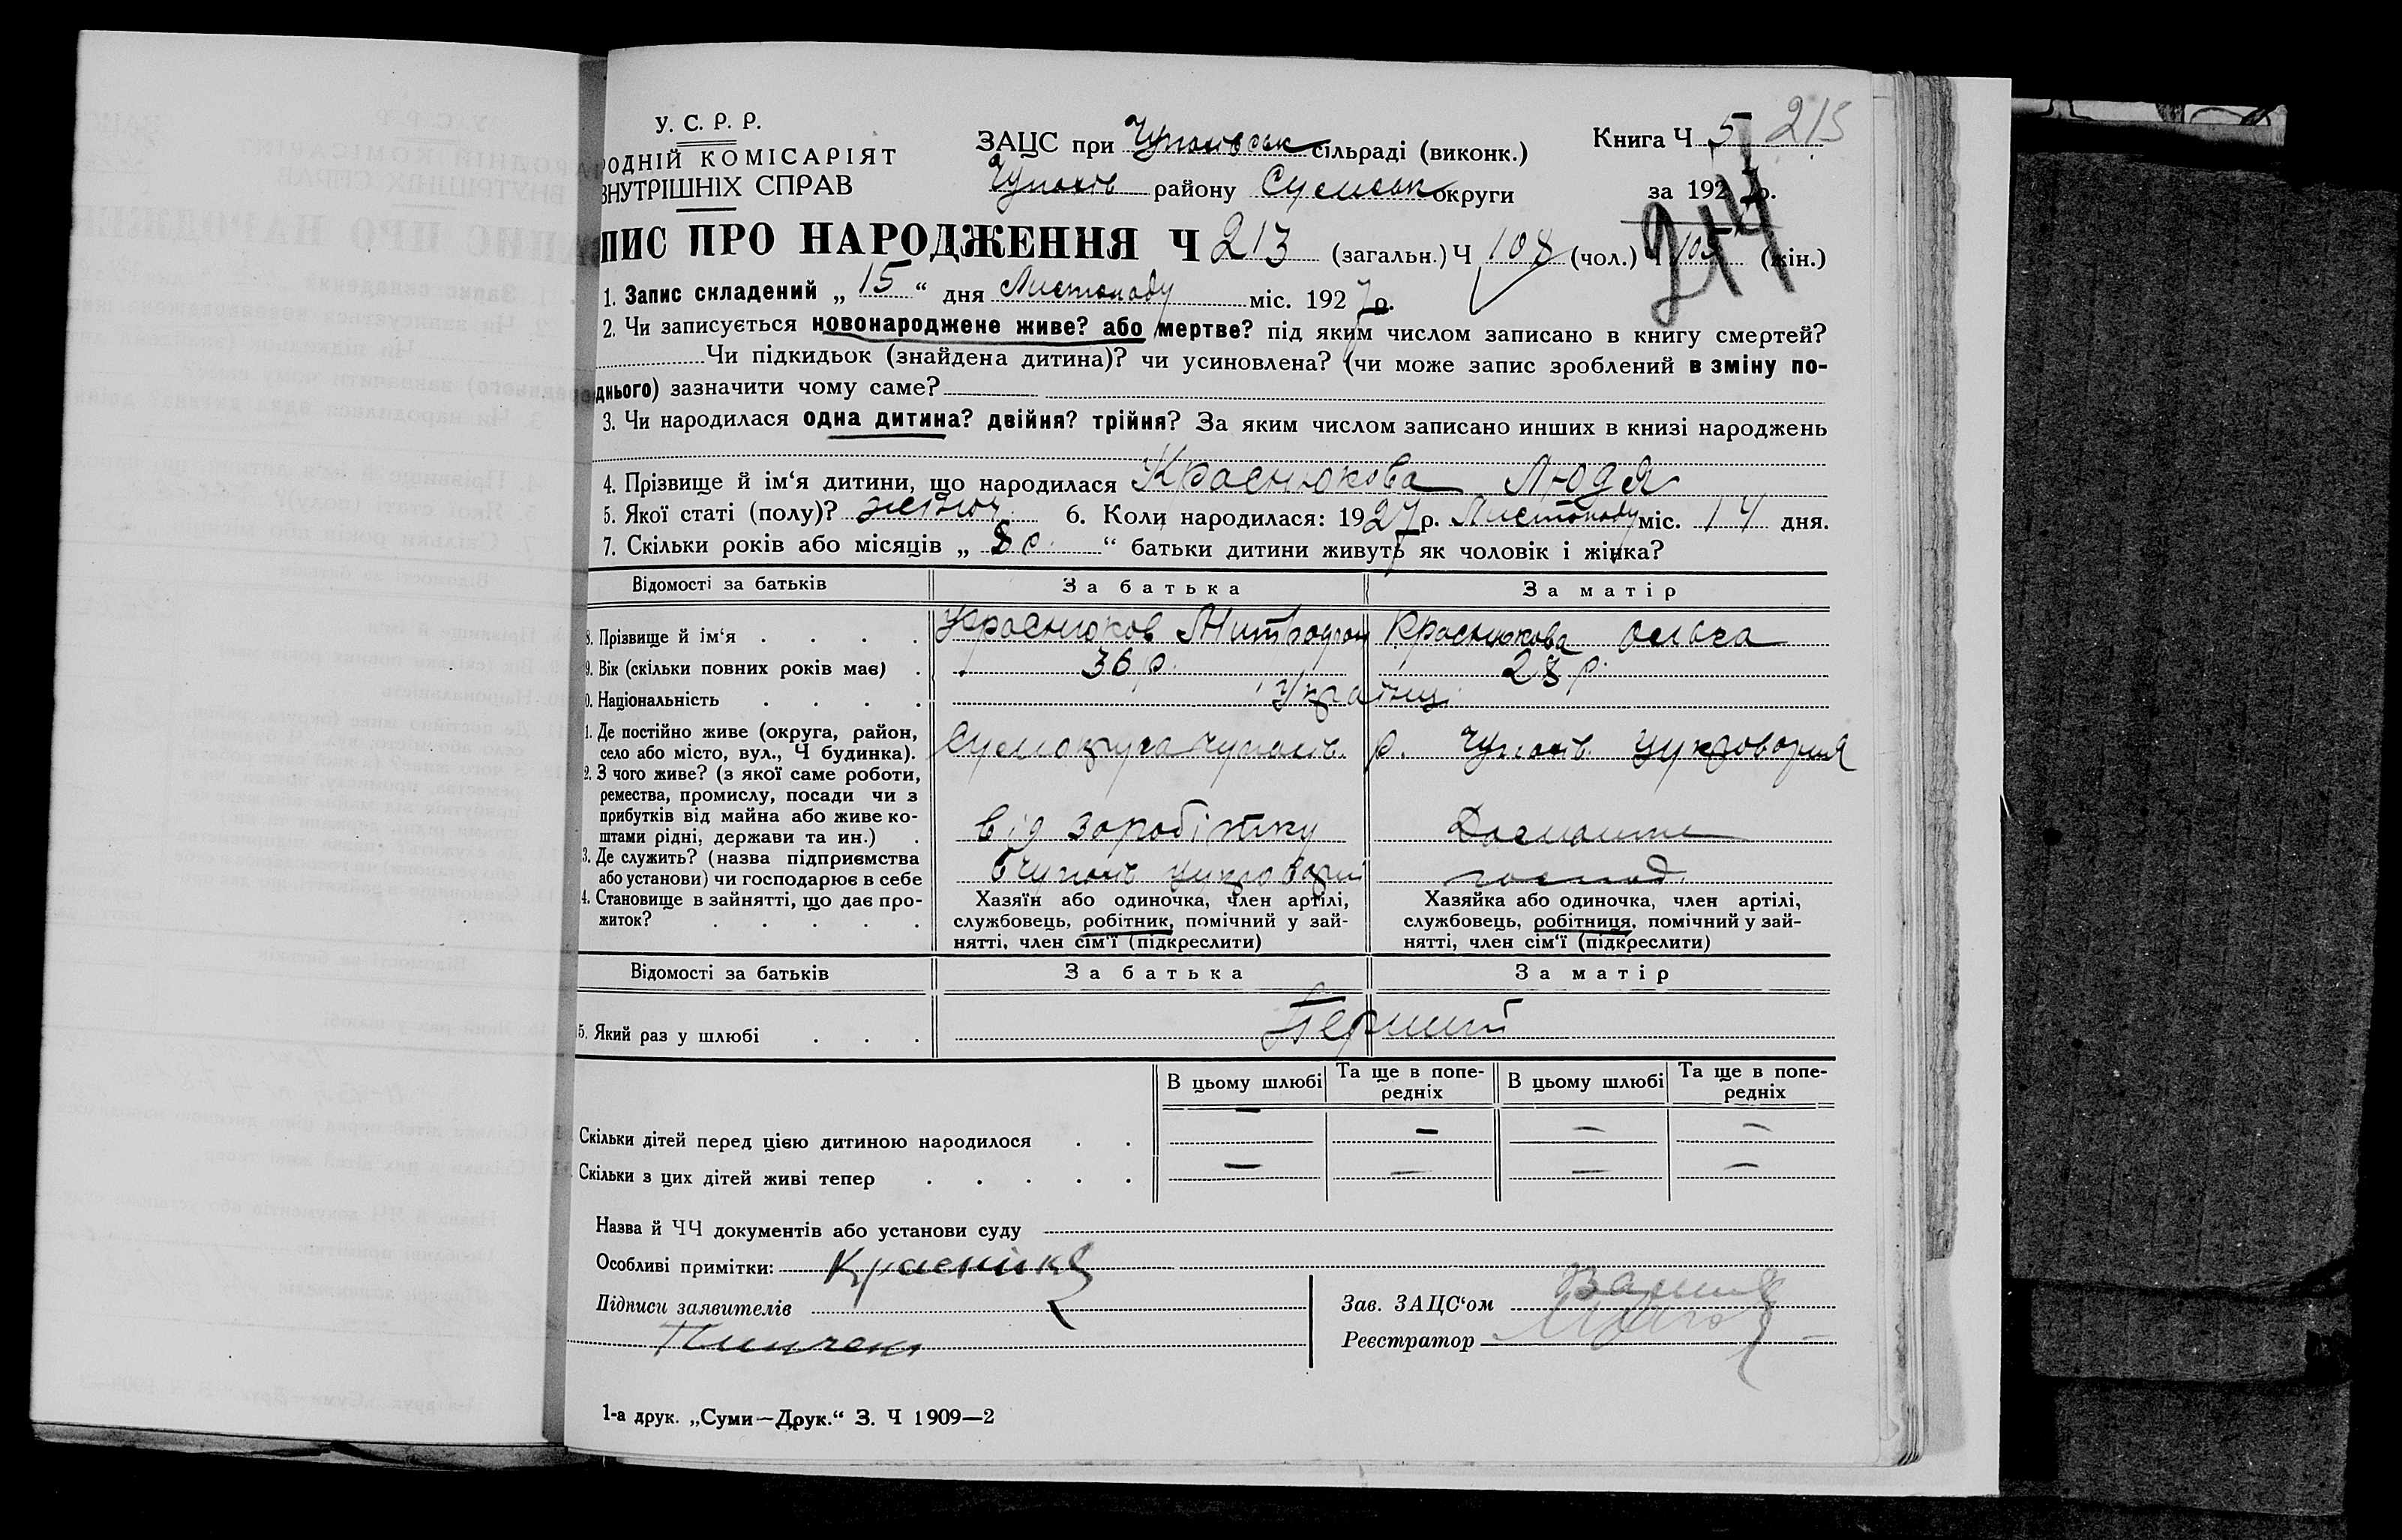 У. С. Р. Р.
РОДНІЙ КОМІСАРІЯТ
ВНУТРІШНІХ СПРАВ
ЗАЦС при сільраді (виконк.)
району округи
Книга Ч 5 215
за 1927 р.
214
ПИС ПРО НАРОДЖЕННЯ Ч 213 (загальн.) Ч 108 (чол.) Ч 105 (жін.)
1. Запис складений „ 15 “ дня Листопаду міс. 1927 р.
2. Чи записується новонароджене живе? або мертве? під яким числом записано в книгу смертей?
Чи підкидьок (знайдена дитина)? чи усиновлена? (чи може запис зроблений в зміну по-
днього) зазначити чому саме?
3. Чи народилася одна дитина? двійня? трійня? За яким числом записано инших в книзі народжень
4. Прізвище й ім‘я дитини, що народилася Краснюкова Людя
5. Якої статі (полу)? жіноч. 6. Коли народилася: 1927 р. Листопаду міс. 14 дня.
7. Скільки років або місяців „ 8 р. “ батьки дитини живуть як чоловік і жінка?
Відомості за батьків За батька За матір
8. Прізвище й ім‘я Краснюков Митрофан Краснюкова Ольга
9. Вік (скільки повних років має) 36 р. 28 р.
0. Національність Українці
1. Де постійно живе (округа, район,
село або місто, вул., Ч будинка). р. цукроварня
2. З чого живе? (з якої саме роботи,
ремества, промислу, посади чи з
прибутків від майна або живе ко-
штами рідні, держави та ин.) від заробітку Домашнє
3. Де служить? (назва підприємства
або установи) чи господарює в себе господ.
4. Становище в зайнятті, що дає про-
житок?
Хазяїн або одиночка, член артілі,
службовець, робітник, помічний у зай-
нятті, член сім‘ї (підкреслити)
Хазяйка або одиночка, член артілі,
службовець, робітниця, помічний у зай-
нятті, член сім‘ї (підкреслити)
Відомості за батьків За батька За матір
5. Який раз у шлюбі Перший
В цьому шлюбі Та ще в попе-
редніх В цьому шлюбі Та ще в попе-
редніх
Скільки дітей перед цією дитиною народилося — — — —
Скільки з цих дітей живі тепер — — — —
Назва й ЧЧ документів або установи суду
Особливі примітки:
Підписи заявителів
Зав. ЗАЦС‘ом
Реєстратор
1-а друк. „Суми—Друк.“ З. Ч 1909—2